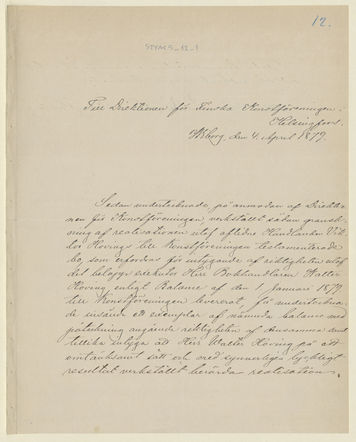 12.
Till Direktionen för Finska Konstföreningen.
Helsingfors.
Wiborg, den 4 April 1879.
Sedan undertecknade, på anmodan af Direktio-
nen för Konstföreningen verkställt sådan gransk-
ning af realisationen utaf aflidne Handlanden Vik-
tor Hovings till Konstföreningen testamenterade
bo, som erfordras för utrönande af riktigheten utaf
det belopp Herr Bokhandlaren Walter
Hoving enligt Balance af den 1 Januari 1879
till Konstföreningen levererat, få undertecknade
insända ett exemplar af nämnde balance med
påteckning angående riktigheten af densamma samt
tillika intyga att Herr Walter Hoving på ett
omtänksamt sätt och med synnerligen lyckligt
resultat verkställt berörda realisation.